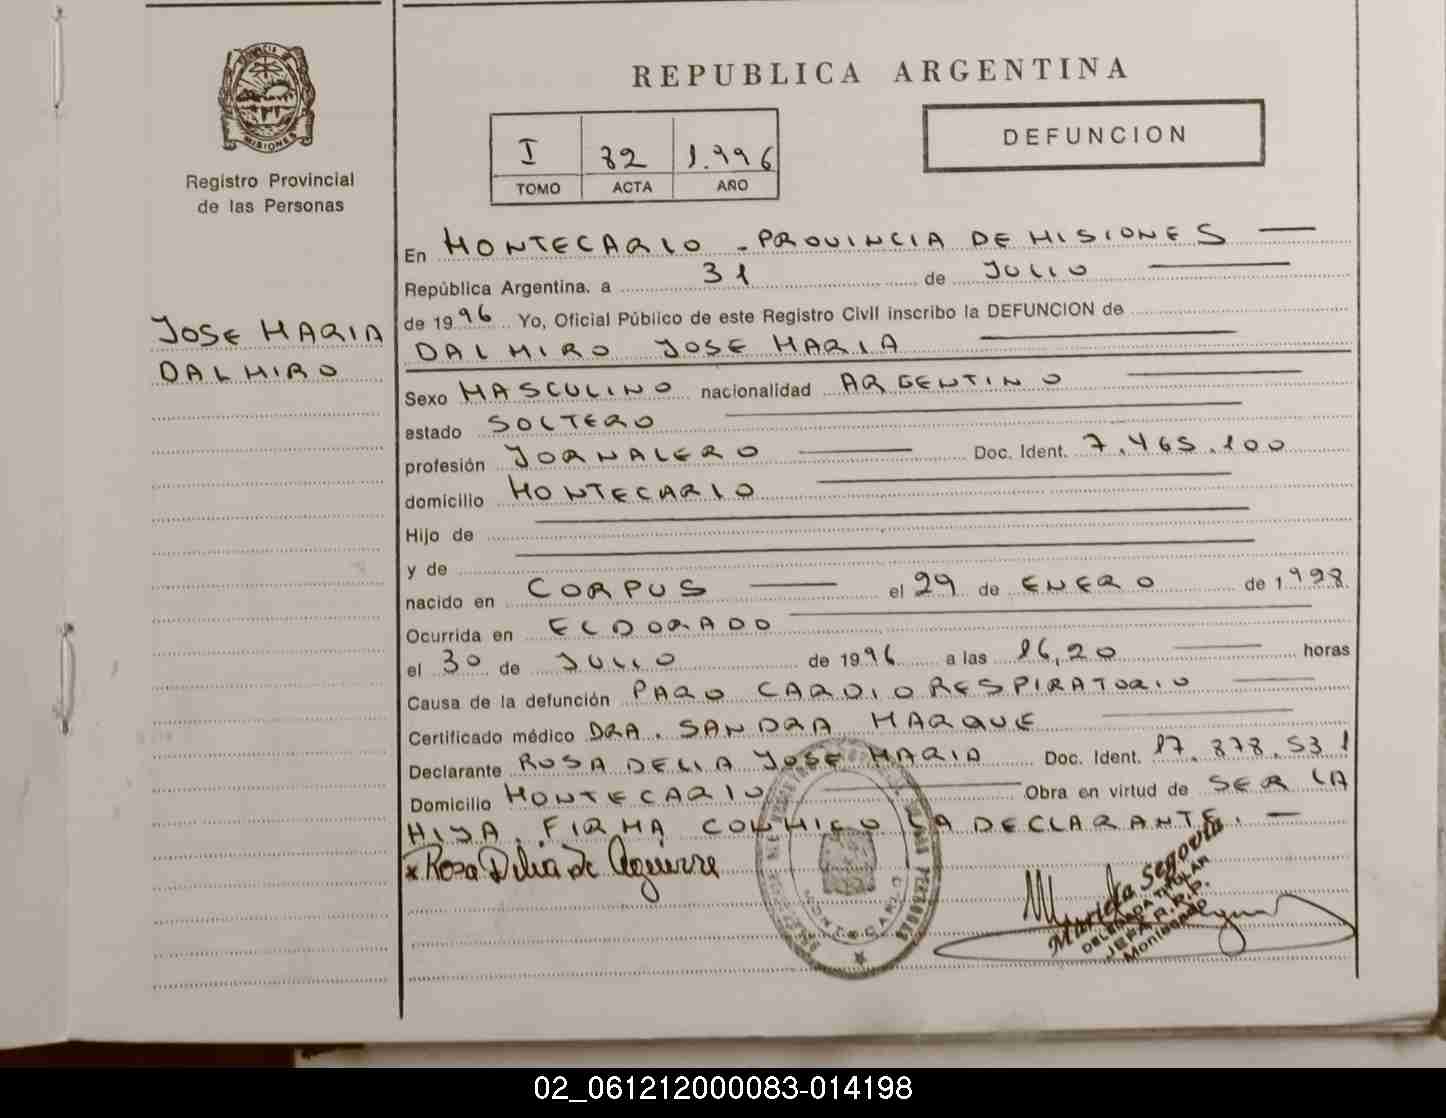 PROVINCIA DE
MISIONES
Registro Provincial
de las Personas
JOSE MARIA
DALMIRO
REPUBLICA ARGENTINA
I 82 1.996
TOMO ACTA AÑO
DEFUNCION
En MONTECARLO - PROVINCIA DE MISIONES
República Argentina. a 31 de JULIO
de 1996 Yo, Oficial Público de este Registro Civil inscribo la DEFUNCION de
DALMIRO JOSE MARIA
Sexo MASCULINO nacionalidad ARGENTINO
estado SOLTERO
profesión JORNALERO Doc. Ident. 7.465.100
domicilio MONTECARLO
Hijo de
y de
nacido en CORPUS el 29 de ENERO de 1.928
Ocurrida en ELDORADO
el 30 de JULIO de 1996 a las 16,20 horas
Causa de la defunción PARO CARDIORESPIRATORIO
Certificado médico DRA. SANDRA MARQUE
Declarante ROSA DELIA JOSE MARIA Doc. Ident. 17.878.531
Domicilio MONTECARLO Obra en virtud de SER LA
HIJA. FIRMA CONMIGO LA DECLARANTE.
x Rosa Dilia de Aguirre
MONTECARLO
Segovia
DELEGADA TITULAR
JEFA R.R.P.
Montecarlo
02_061212000083-014198